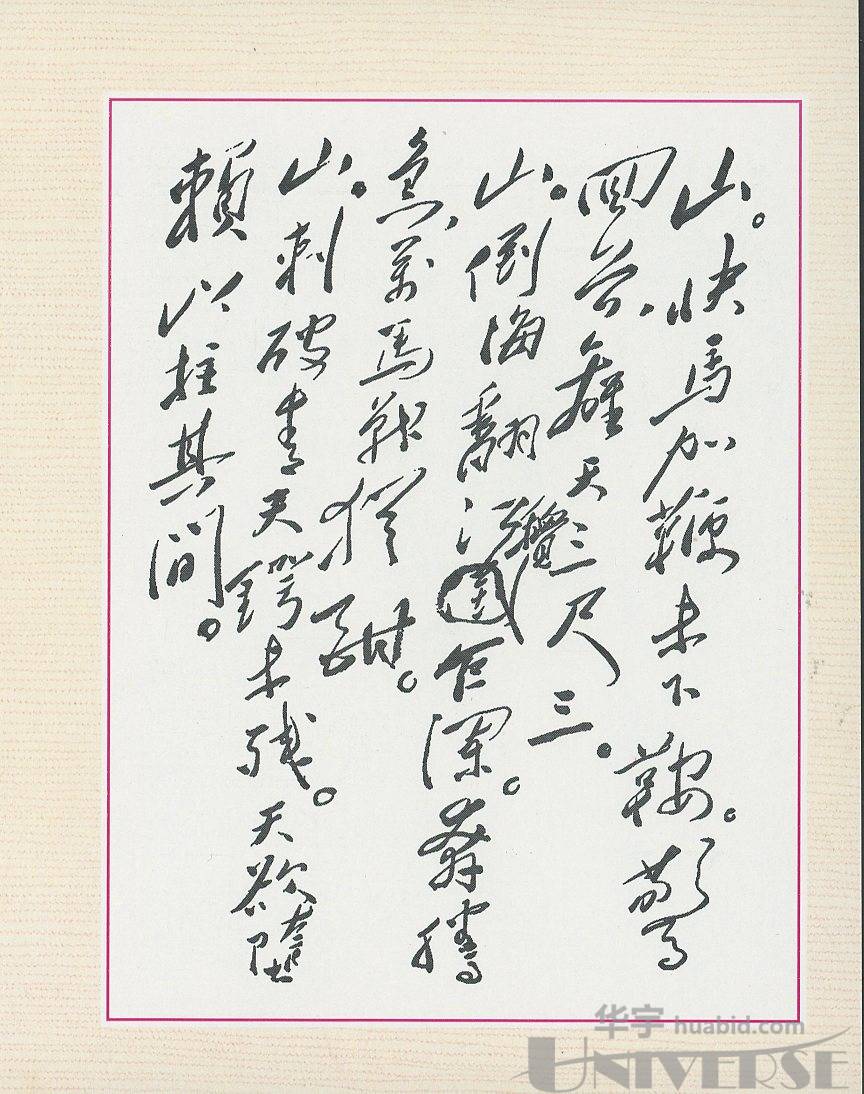 山。快馬加鞭未下鞍。驚
回首,離天三尺三。
山。倒海翻江攪巨瀾。奔騰
急,萬馬戰猶酣。
山。刺破青天鍔未殘。天欲墮
賴以拄其間。
华宇 huabid.com
UNIVERSE